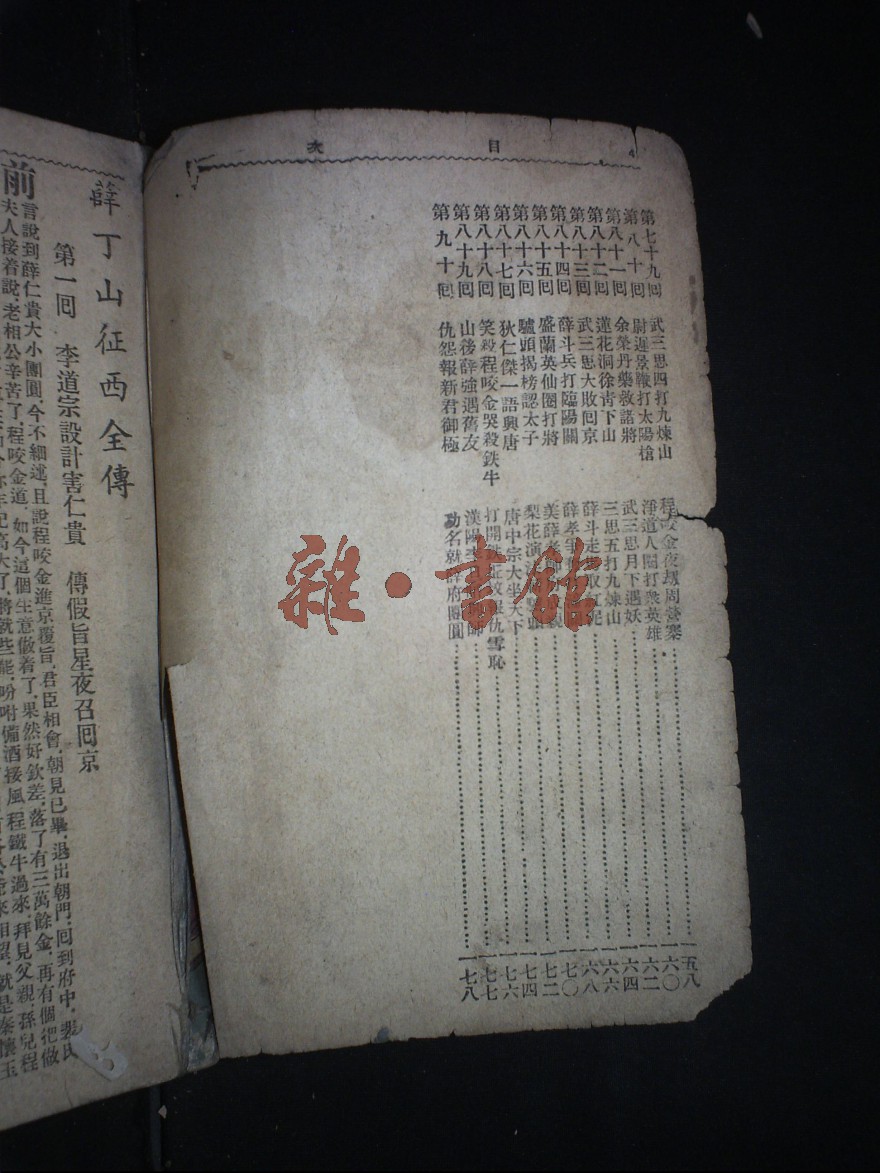 目次
第七十九囘 武三思四打九煉山 程咬金夜刼周營寨 一五八
第八十囘 尉遲景鞭打太陽槍 淨道人鬮打衆英雄 一六〇
第八十一囘 余榮丹藥救諾將 武三思月下遇妖 一六二
第八十二囘 蓮花洞徐靑下山 三思五打九煉山 一六四
第八十三囘 武三思大敗囘京 薛斗走 一六六
第八十四囘 薛斗兵打臨陽關 薛孝 一六八
第八十五囘 盛蘭英仙圈打將 一七〇
第八十六囘 驢頭揭榜認太子 梨花演 一七二
第八十七囘 狄仁傑一語興唐 唐中宗大坐天下 一七四
第八十八囘 笑殺程咬金哭殺鉄牛 打開鉄坵坟報仇雪恥 一七六
第八十九囘 山後薛強遇舊友 漢陽李 師 一七七
第九十囘 仇怨報新君御極 功名就薛府團圓 一七八
薛丁山征西全傳
第一囘 李道宗設計害仁貴 傳假旨星夜召囘京
前言說到薛仁貴大小團圓，今不細述，且說程咬金進京覆旨，君臣相會，朝見已畢，退出朝門，囘到府中，裴氏
夫人接着說，老相公辛苦了，程咬金道，如今，這個生意做着了，果然好欽差，落了有三萬餘金，再有個把做
年紀高大了，將就些能，吩咐備酒接風，程鐵牛過來，拜見父親，孫兒程
來相望，就是秦懷玉
雜·書館